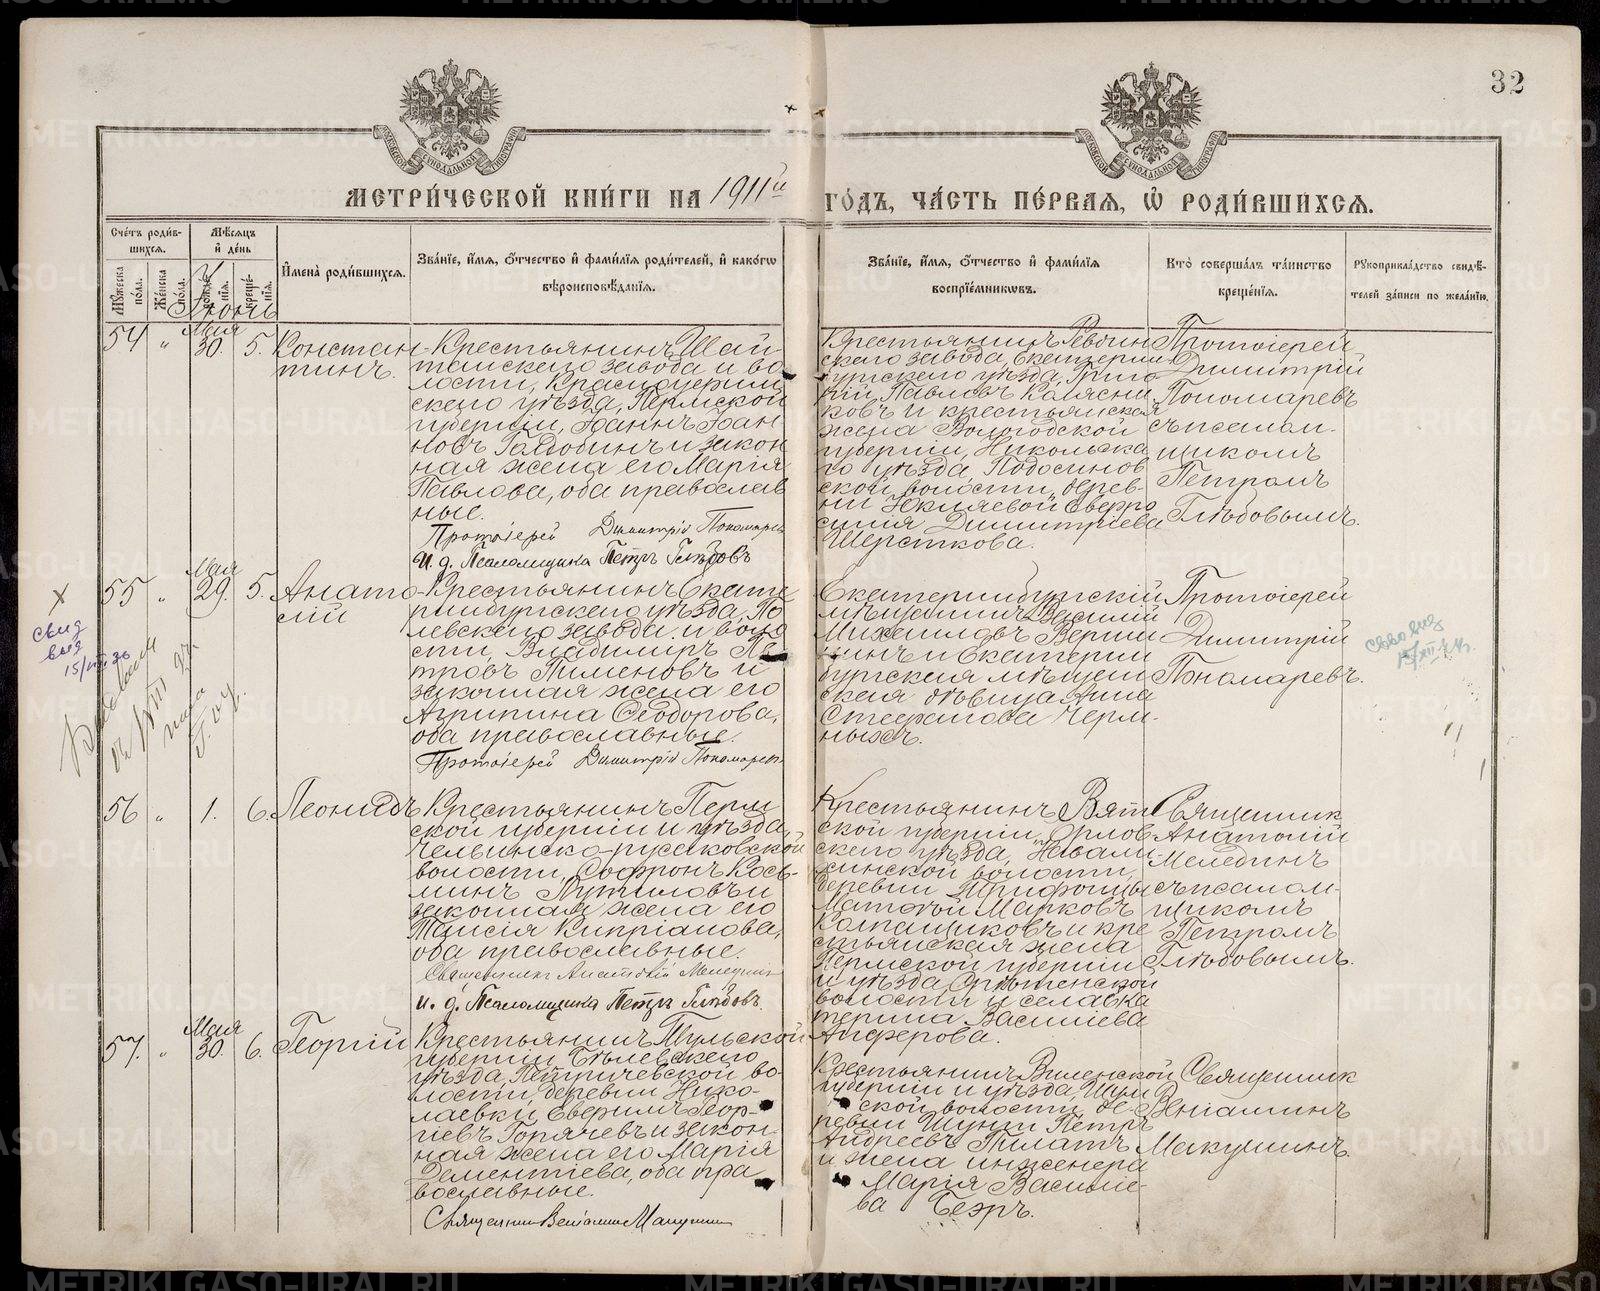 32
МЕТРИ́ЧЕСКОЙ КНИ́ГИ НА 1911й ГО́ДЪ, ЧА́СТЬ ПЕ́РВАѦ, Ѡ҆ РОДИ́ВШИХСѦ.
Сче́тъ роди́в-
шихсѧ.
Мѹ́жеска по́ла.
Же́нска по́ла.
Мѣ́сѧцъ
и҆ де́нь
рожде́нїѧ.
креще́нїѧ.
И҆мена̀ роди́вшихсѧ.
Зва́нїе, и҆́мѧ, ѻ҆́тчество и҆ фами́лїѧ роди́телей, и҆ како́гѡ
вѣроисповѣ́данїѧ.
Зва́нїе, и҆́мѧ, ѻ҆́тчество и҆ фами́лїѧ
воспрїе́мникѡвъ.
Кто̀ соверша́лъ та́инство
креще́нїѧ.
Рꙋкоприкла́дство свидѣ́-
телей за́писи по жела́нїю.
Іюнь
54 " Мая 30. 5. Констан-
тинъ.
Крестьянинъ Шай-
танскаго завода и во
лости, Красноуфим
скаго уѣзда, Пермской
губерніи, Іоаннъ Іоан
новъ Голдобинъ и закон
ная жена его Марія
Павлова, оба православ
ные.
Протоіерей Димитрій Пономаревъ
И. д. Псаломщика Петръ Глѣбовъ
Крестьянинъ Ревдин
скаго завода, Екатерин
бургскаго уѣзда, Григо
рій Павловъ Колясни
ковъ и крестьянская
жена Вологодской
губерніи, Никольска
го уѣзда, Подосинов
ской волости, дерев-
ни Юкляевой Еверо
синія Димитріева
Шерсткова.
Протоіерей
Димитрій
Пономаревъ
съ псалом-
щикомъ
Петромъ
Глѣбовымъ.
55 " Мая 29. 5. Анато-
лій
Крестьянинъ Екате
ринбургскаго уѣзда, По
левскаго завода и воло
сти, Владимиръ Пе
тровъ Пименовъ и
законная жена его
Агрипина Ѳеодорова,
оба православные.
Протоіерей Димитрій Пономаревъ
Екатеринбургскій
мѣщанинъ Василій
Михаиловъ Верши
нинъ и Екатерин
бургская мѣщан
ская дѣвица Анна
Стефанова Черм-
ныхъ.
Протоіерей
Димитрій
Пономаревъ.
свид
выд
15/VIII 36
56 " 1. 6. Леонидъ
Крестьянинъ Перм
ской губерніи и уѣзда,
Чельвинско-русаковской
волости, Софронъ Кось-
минъ Путиловъ и
законная жена его
Таисія Кипріанова,
оба православные.
Священникъ Анатолій Меледин
И. д. Псаломщика Петръ Глѣбовъ.
Крестьянинъ Вят
ской губерніи, Орлов
скаго уѣзда,
волости,
деревни Трифоницы
Матѳій Марковъ
Колпащиковъ и кре
стьянская жена
Пермской губерніи
и уѣзда, Сретенской
волости и села Ека
терина Василіева
Анферова.
Священник
Анатолій
Мелединъ
съ псалом-
щикомъ
Петромъ
Глѣбовымъ.
57. " Мая 30. 6. Георгій
Крестьянинъ Тульской
губерніи Бѣлевскаго
уѣзда, Петрищевской во-
лости, деревни Нико-
лаевки, Еверилъ Геор-
гіевъ Горячевъ и закон-
ная жена его Марія
Дементіева, оба пра
вославные.
Священник Веніамин Макушин
Крестьянин Виленской
губерніи и уѣзда, Шум
ской волости, де-
ревни Шунти Петръ
Андреевъ Пилатъ
и жена инженера
Марія Василіе-
ва Беэръ.
Священник
Веніаминъ
Макушинъ.